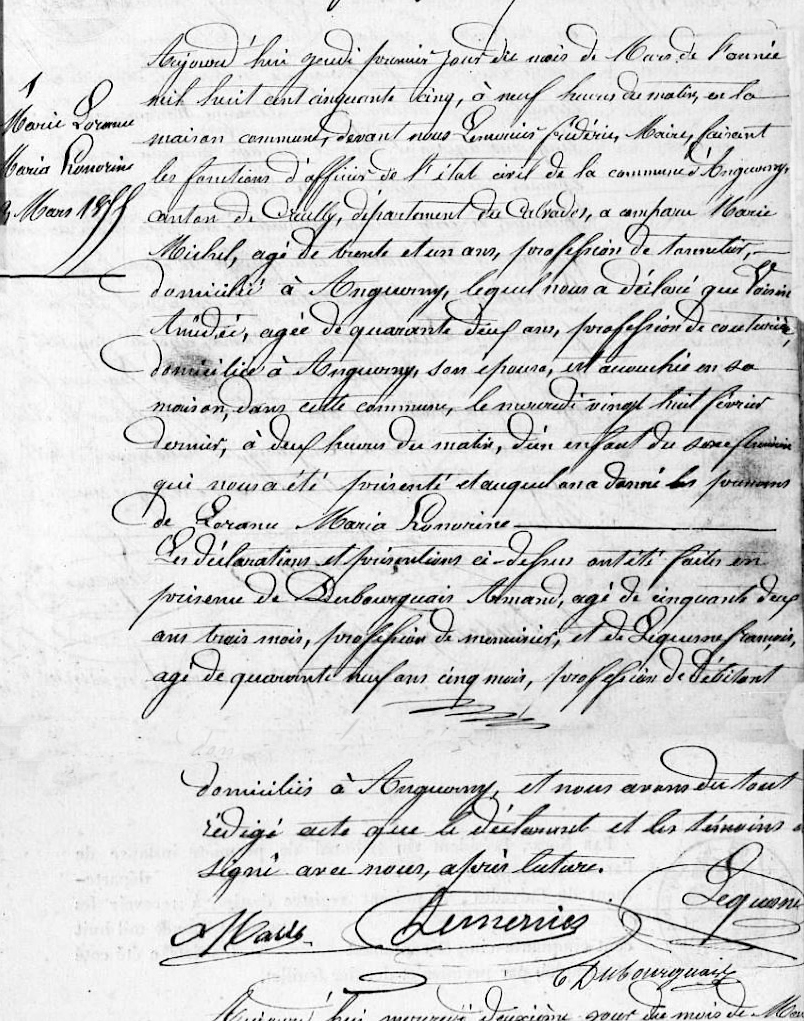 1
Marie Lorance
Maria Honorine
Mars 1855
Aujourd'hui jeudi premier jour du mois de Mars de l'année
mil huit cent cinquante cinq, à neuf heures du matin, en la
maison commune, devant nous Lemenier frédéric, Maire, faisant
les fonctions d'officier de l'état civil de la commune d'Anguerny,
canton de Creully, département du Calvados, a comparu Marie
Michel, agé de trente et un ans, profession de
domicilié à Anguerny, lequel nous a déclaré que Voisin
Amédée, agée de quarante deux ans, profession de couturière,
domiciliée à Anguerny, son épouse, est accouchée en sa
maison, dans cette commune, le mercredi vingt huit février
dernier, à deux heures du matin, d'un enfant du sexe féminin
qui nous a été présenté et auquel on a donné les prénoms
de Lorance Maria Honorine
Les déclarations et présentations ci-dessus ont été faites en
présence de Dubourguais Armand, agé de cinquante deux
ans trois mois, profession de menuisier, et de Lequesne françois,
agé de quarante neuf ans cinq mois, profession de Débitant
domiciliés à Anguerny, et nous avons du tout
rédigé acte que le déclarant et les témoins
signé avec nous, après lecture.
Lequesne
Marie Lemenier
Dubourguais
Aujourd'hui mercredi deuxième jour du mois de Mai